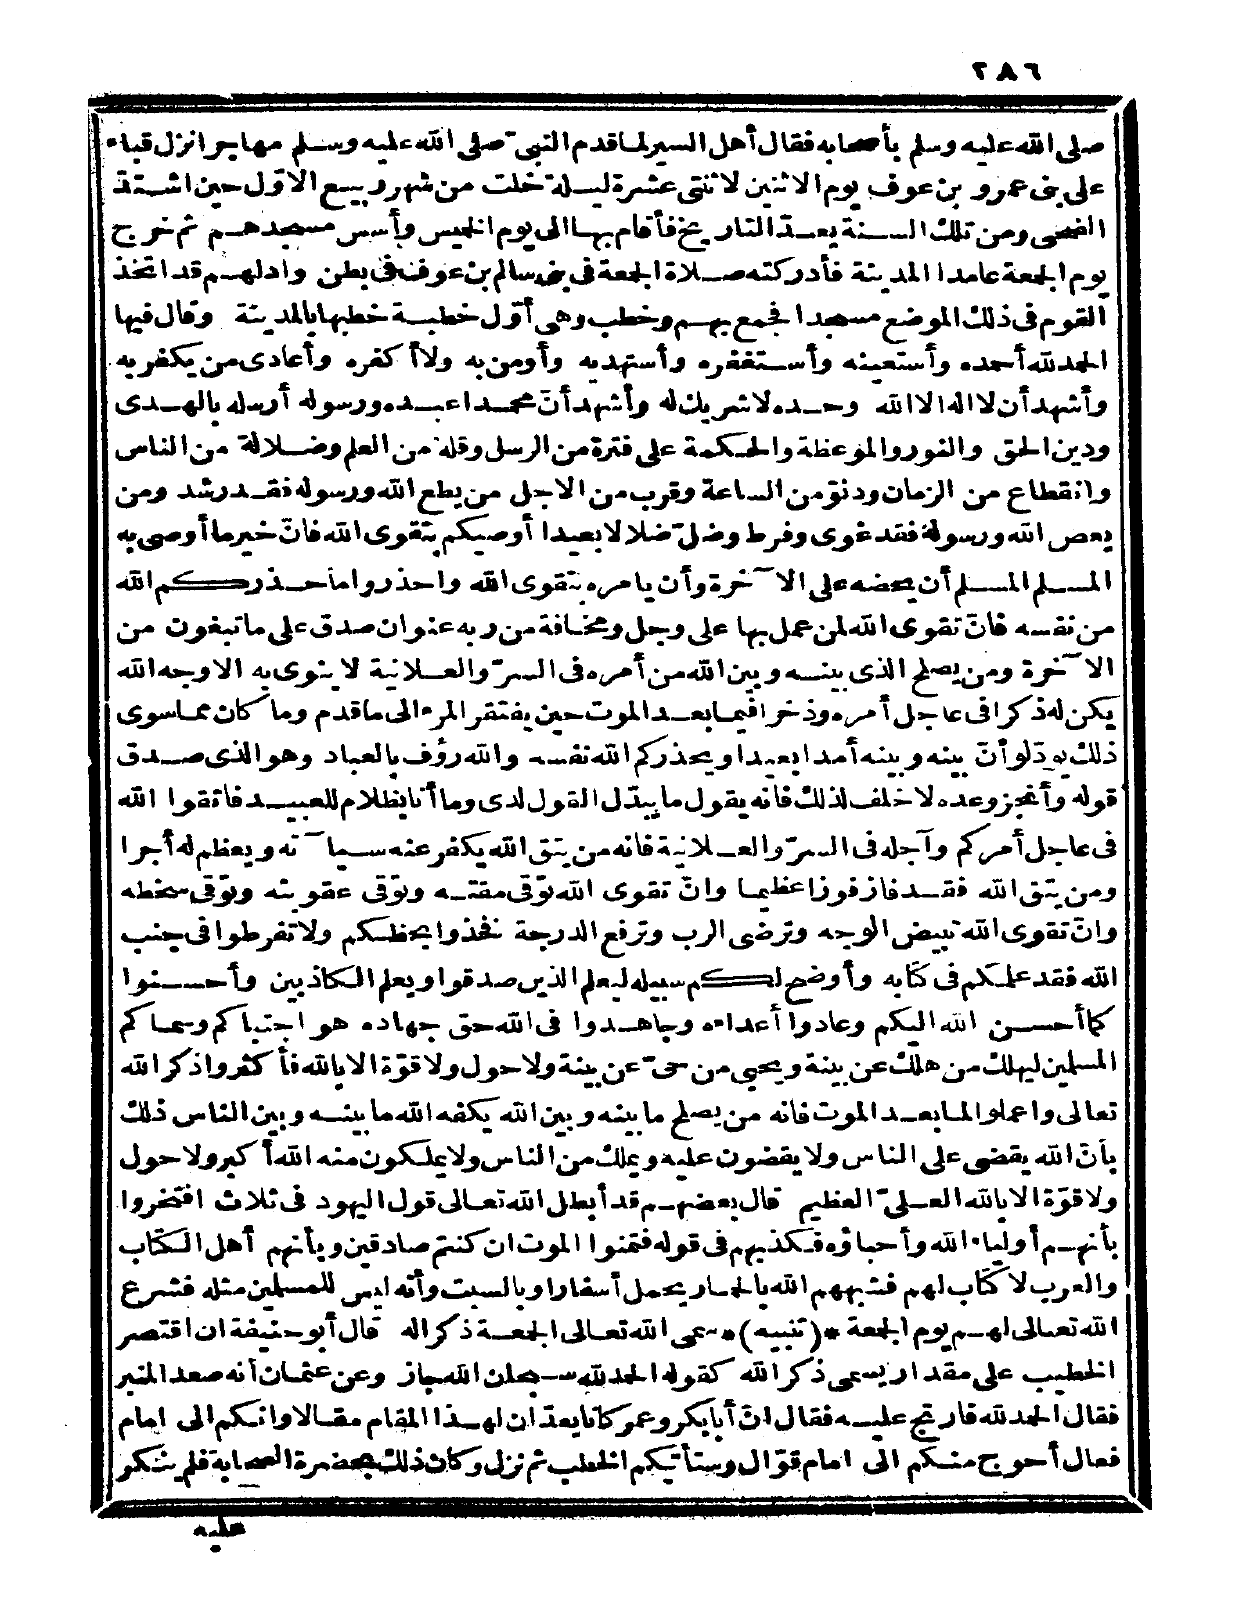 ٢٨٦
صلى الله عليه وسلم بأصحابه فقال أهل السير لما قدم النبيّ صلى الله عليه وسلم مهاجرا نزل قباء
على بنى عمرو بن عوف يوم الاثنين لاثنتى عشرة ليلة خلت من شهر ربيع الاوّل حين اشتدّ
الضحى ومن تلك السنة يعدّ التاريخ فأقام بها الى يوم الخميس وأسس مسجدهم ثم خرج
يوم الجمعة عامدا المدينة فأدركته صلاة الجمعة فى بنى سالم بن عوف فى بطن وادلهم قد اتخذ
القوم فى ذلك الموضع مسجدا فجمع بهم وخطب وهى أوّل خطبة خطبها بالمدينة وقال فيها
الحمد لله أحمده وأستعينه وأستغفره وأستهديه وأومن به ولا أكفره وأعادى من يكفر به
وأشهد أن لا اله الا الله وحده لا شريك له وأشهد أنّ محمدا عبده ورسوله أرسله بالهدى
ودين الحق والنور والموعظة والحكمة على فترة من الرسل وقلة من العلم وضلالة من الناس
وانقطاع من الزمان ودنوّ من الساعة وقرب من الاجل من يطع الله ورسوله فقد رشد ومن
يعص الله ورسوله فقد غوى وفرط وضلّ ضلالا بعيدا أوصيكم بتقوى الله فانّ خير ما أوصى به
المسلم المسلم أن يحضه على الآخرة وأن يامره بتقوى الله واحذروا ما حذركم الله
من نفسه فانّ تقوى الله لمن عمل بها على وجل ومخافة من ربه عنوان صدق على ما تبغون من
الآخرة ومن يصلح الذى بينه وبين الله من أمره فى السرّ والعلانية لا ينوى به الا وجه الله
يكن له ذكرا فى عاجل أمره وذخرا فيما بعد الموت حين يفتقر المرء الى ما قدم وما كان مما سوى
ذلك يودّ لو أنّ بينه وبينه أمدا بعيدا ويحذركم الله نفسه والله رؤف بالعباد وهو الذى صدق
قوله وأنجز وعده لا خلف لذلك فانه يقول ما يبدّل القول لدى وما أنا بظلام للعبيد فاتقوا الله
فى عاجل أمركم وآجله فى السرّ والعلانية فانه من يتق الله يكفر عنه سيآته ويعظم له أجرا
ومن يتق الله فقد فاز فوزا عظيما وانّ تقوى الله توّقى مقته وتوّقى عقوبته وتوّقى سخطه
وانّ تقوى الله تبيض الوجه وترضى الرب وترفع الدرجة فخذوا بحظكم ولا تفرطوا فى جنب
الله فقد علمكم فى كتابه وأوضح لكم سبيله ليعلم الذين صدقوا ويعلم الكاذبين وأحسنوا
كما أحسن الله اليكم وعادوا أعداءه وجاهدوا فى الله حق جهاده هو اجتباكم وسماكم
المسلمين ليهلك من هلك عن بينة ويحيى من حىّ عن بينة ولا حول ولا قوّة الا بالله فأكثروا ذكر الله
تعالى واعملوا لما بعد الموت فانه من يصلح ما بينه وبين الله يكفه الله ما بينه وبين الناس ذلك
بأنّ الله يقضى على الناس ولا يقضون عليه ويملك من الناس ولا يملكون منه الله أكبر ولا حول
ولا قوّة الا بالله العلىّ العظيم قال بعضهم قد أبطل الله تعالى قول اليهود فى ثلاث افتخروا
بأنهم أولياء الله وأحباؤه فكذبهم فى قوله فتمنوا الموت ان كنتم صادقين وبأنهم أهل الكتاب
والعرب لا كتاب لهم فشبههم الله بالحمار يحمل أسفارا وبالسبت وأنه ليس للمسلمين مثله فشرع
الله تعالى لهم يوم الجمعة *(تنبيه)* سمى الله تعالى الجمعة ذكرا له قال أبو حنيفة ان اقتصر
الخطيب على مقدار يسمى ذكر الله كقوله الحمد لله سبحان الله جاز وعن عثمان أنه صعد المنبر
فقال الحمد لله فارتج عليه فقال انّ أبا بكر وعمر كانا يعدّان لهذا المقام مقالا وانكم الى امام
فعال أحوج منكم الى امام قوّال وستأتيكم الخطب ثم نزل وكان ذلك بحضرة الصحابة فلم ينكر
عليه